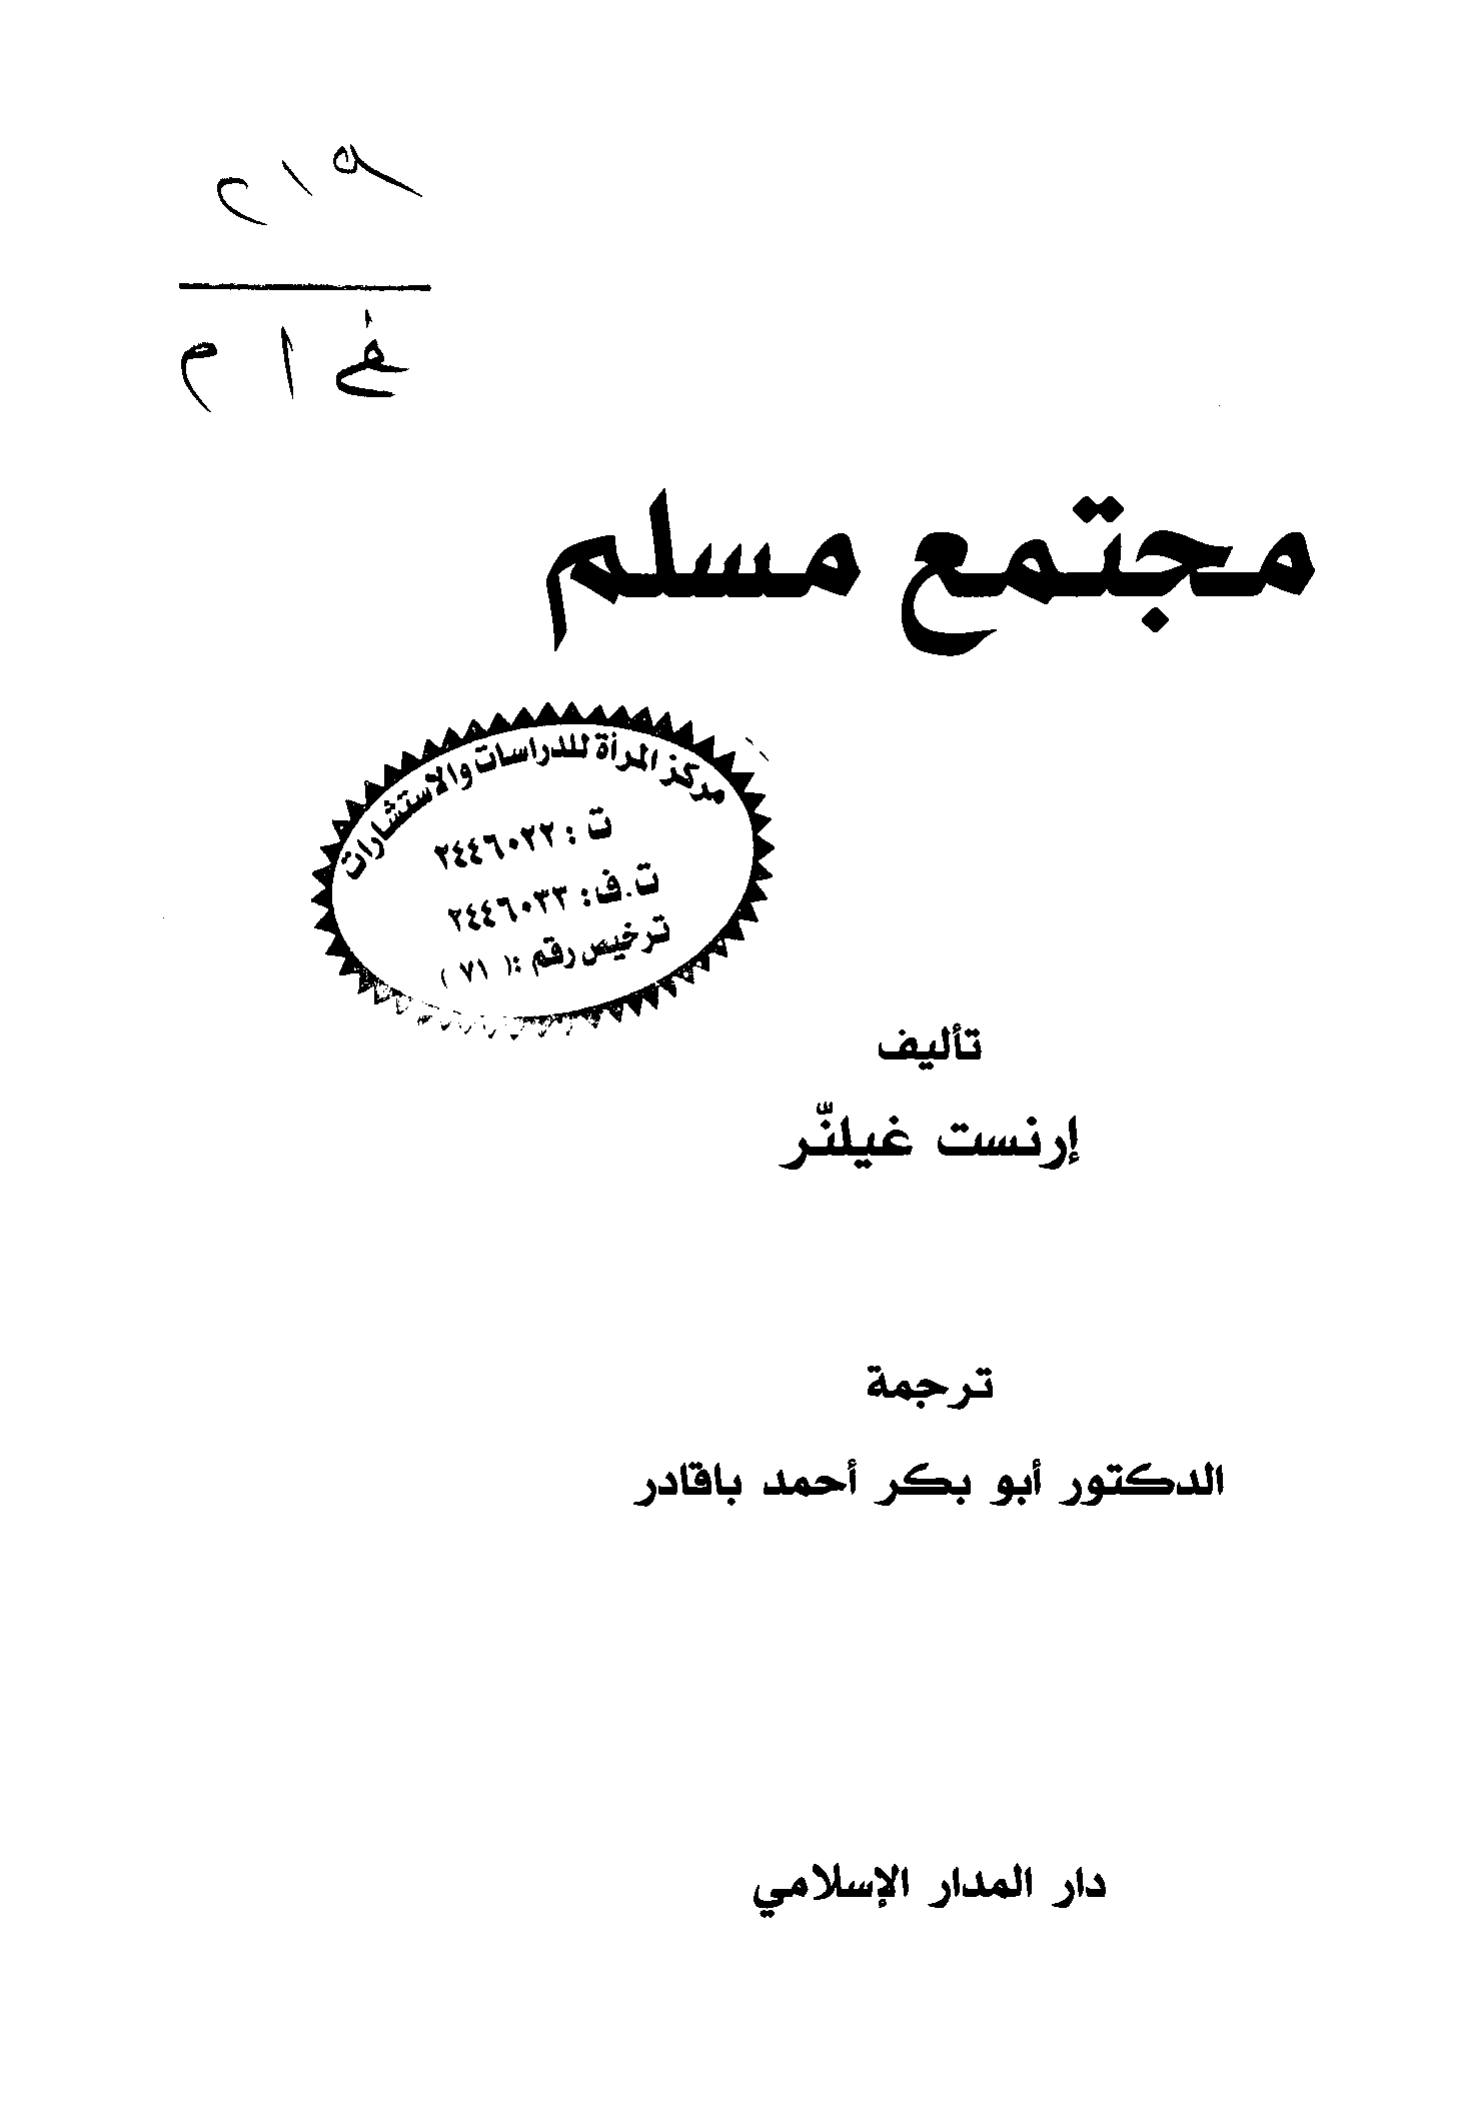 ٢١٩
غ ا م
مجتمع مسلم
مركز المرأة للدراسات والاستشارات
ت : ٢٤٤٦٠٢٢
ت.ف: ٢٤٤٦٠٣٣
ترخيص رقم :( ٧١ )
تأليف
إرنست غيلنّر
ترجمة
الدكتور أبو بكر أحمد باقادر
دار المدار الإسلامي